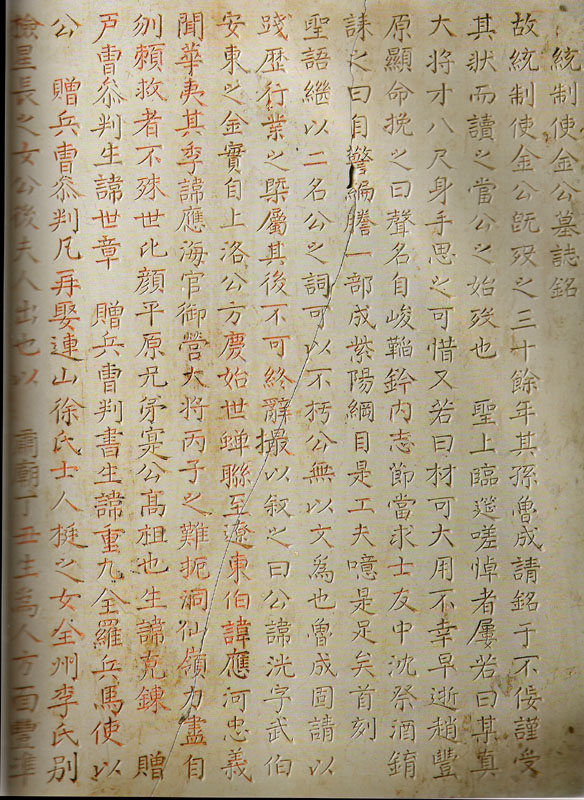 統制使金公墓誌銘
故統制使金公旣歿之三十餘年其孫魯成請銘于不佞謹受
其狀而讀之當公之始歿也 聖上臨筵嗟悼者屢若曰某眞
大將才八尺身手思之可惜又若曰材可大用不幸早逝趙豐
原顯命挽之曰聲名自峻韜鈐內志節當求士友中沈祭酒錥
誄之曰自警編謄一部成紫陽綱目是工夫噫是足矣首刻
聖語繼以二名公之詞可以不朽公無以文爲也魯成固請以
踐歷行業之槩屬其後不可終辭撮以叙之曰公諱洸字武伯
安東之金實自上洛公方慶始世蟬聯至遼東伯諱應河忠義
聞華夷其季諱應海官御營大將丙子之難扼洞仙嶺力盡自
刎賴救者不殊世比顔平原兄弟寔公高祖也生諱克鍊 贈
戶曹叅判生諱世章 贈兵曹判書生諱重九全羅兵馬使以
公 贈兵曹叅判凡再娶連山徐氏士人挺之女全州李氏別
檢星長之女公後夫人出也以 肅廟丁丑生爲人方面豐準